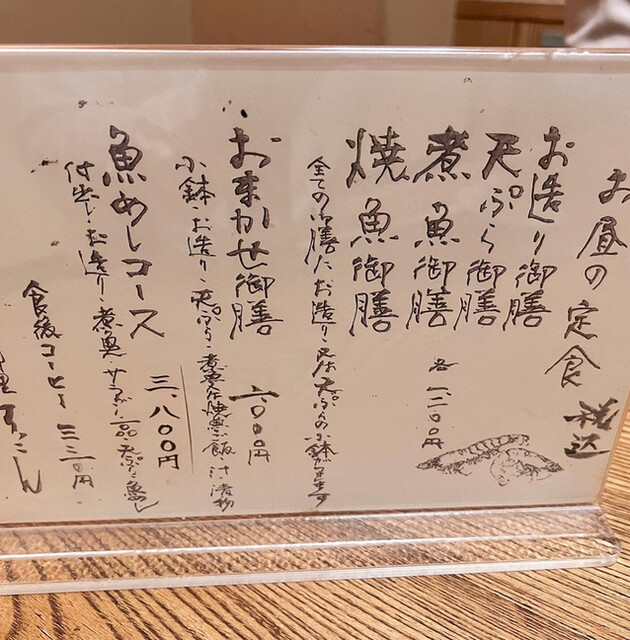 お昼の定食 税込
お造り御膳
天ぷら御膳
煮魚御膳
焼魚御膳
各 一、二〇〇円
全ての御膳にお造り又は天ぷらの小鉢が付きます
おまかせ御膳
小鉢・お造り・天ぷら・煮魚又は焼魚・ご飯・汁・漬物
魚めしコース 三、八〇〇円
付出し・お造り・煮魚・サラダ・一品・天ぷら・魚めし
食後コーヒー 二二〇円